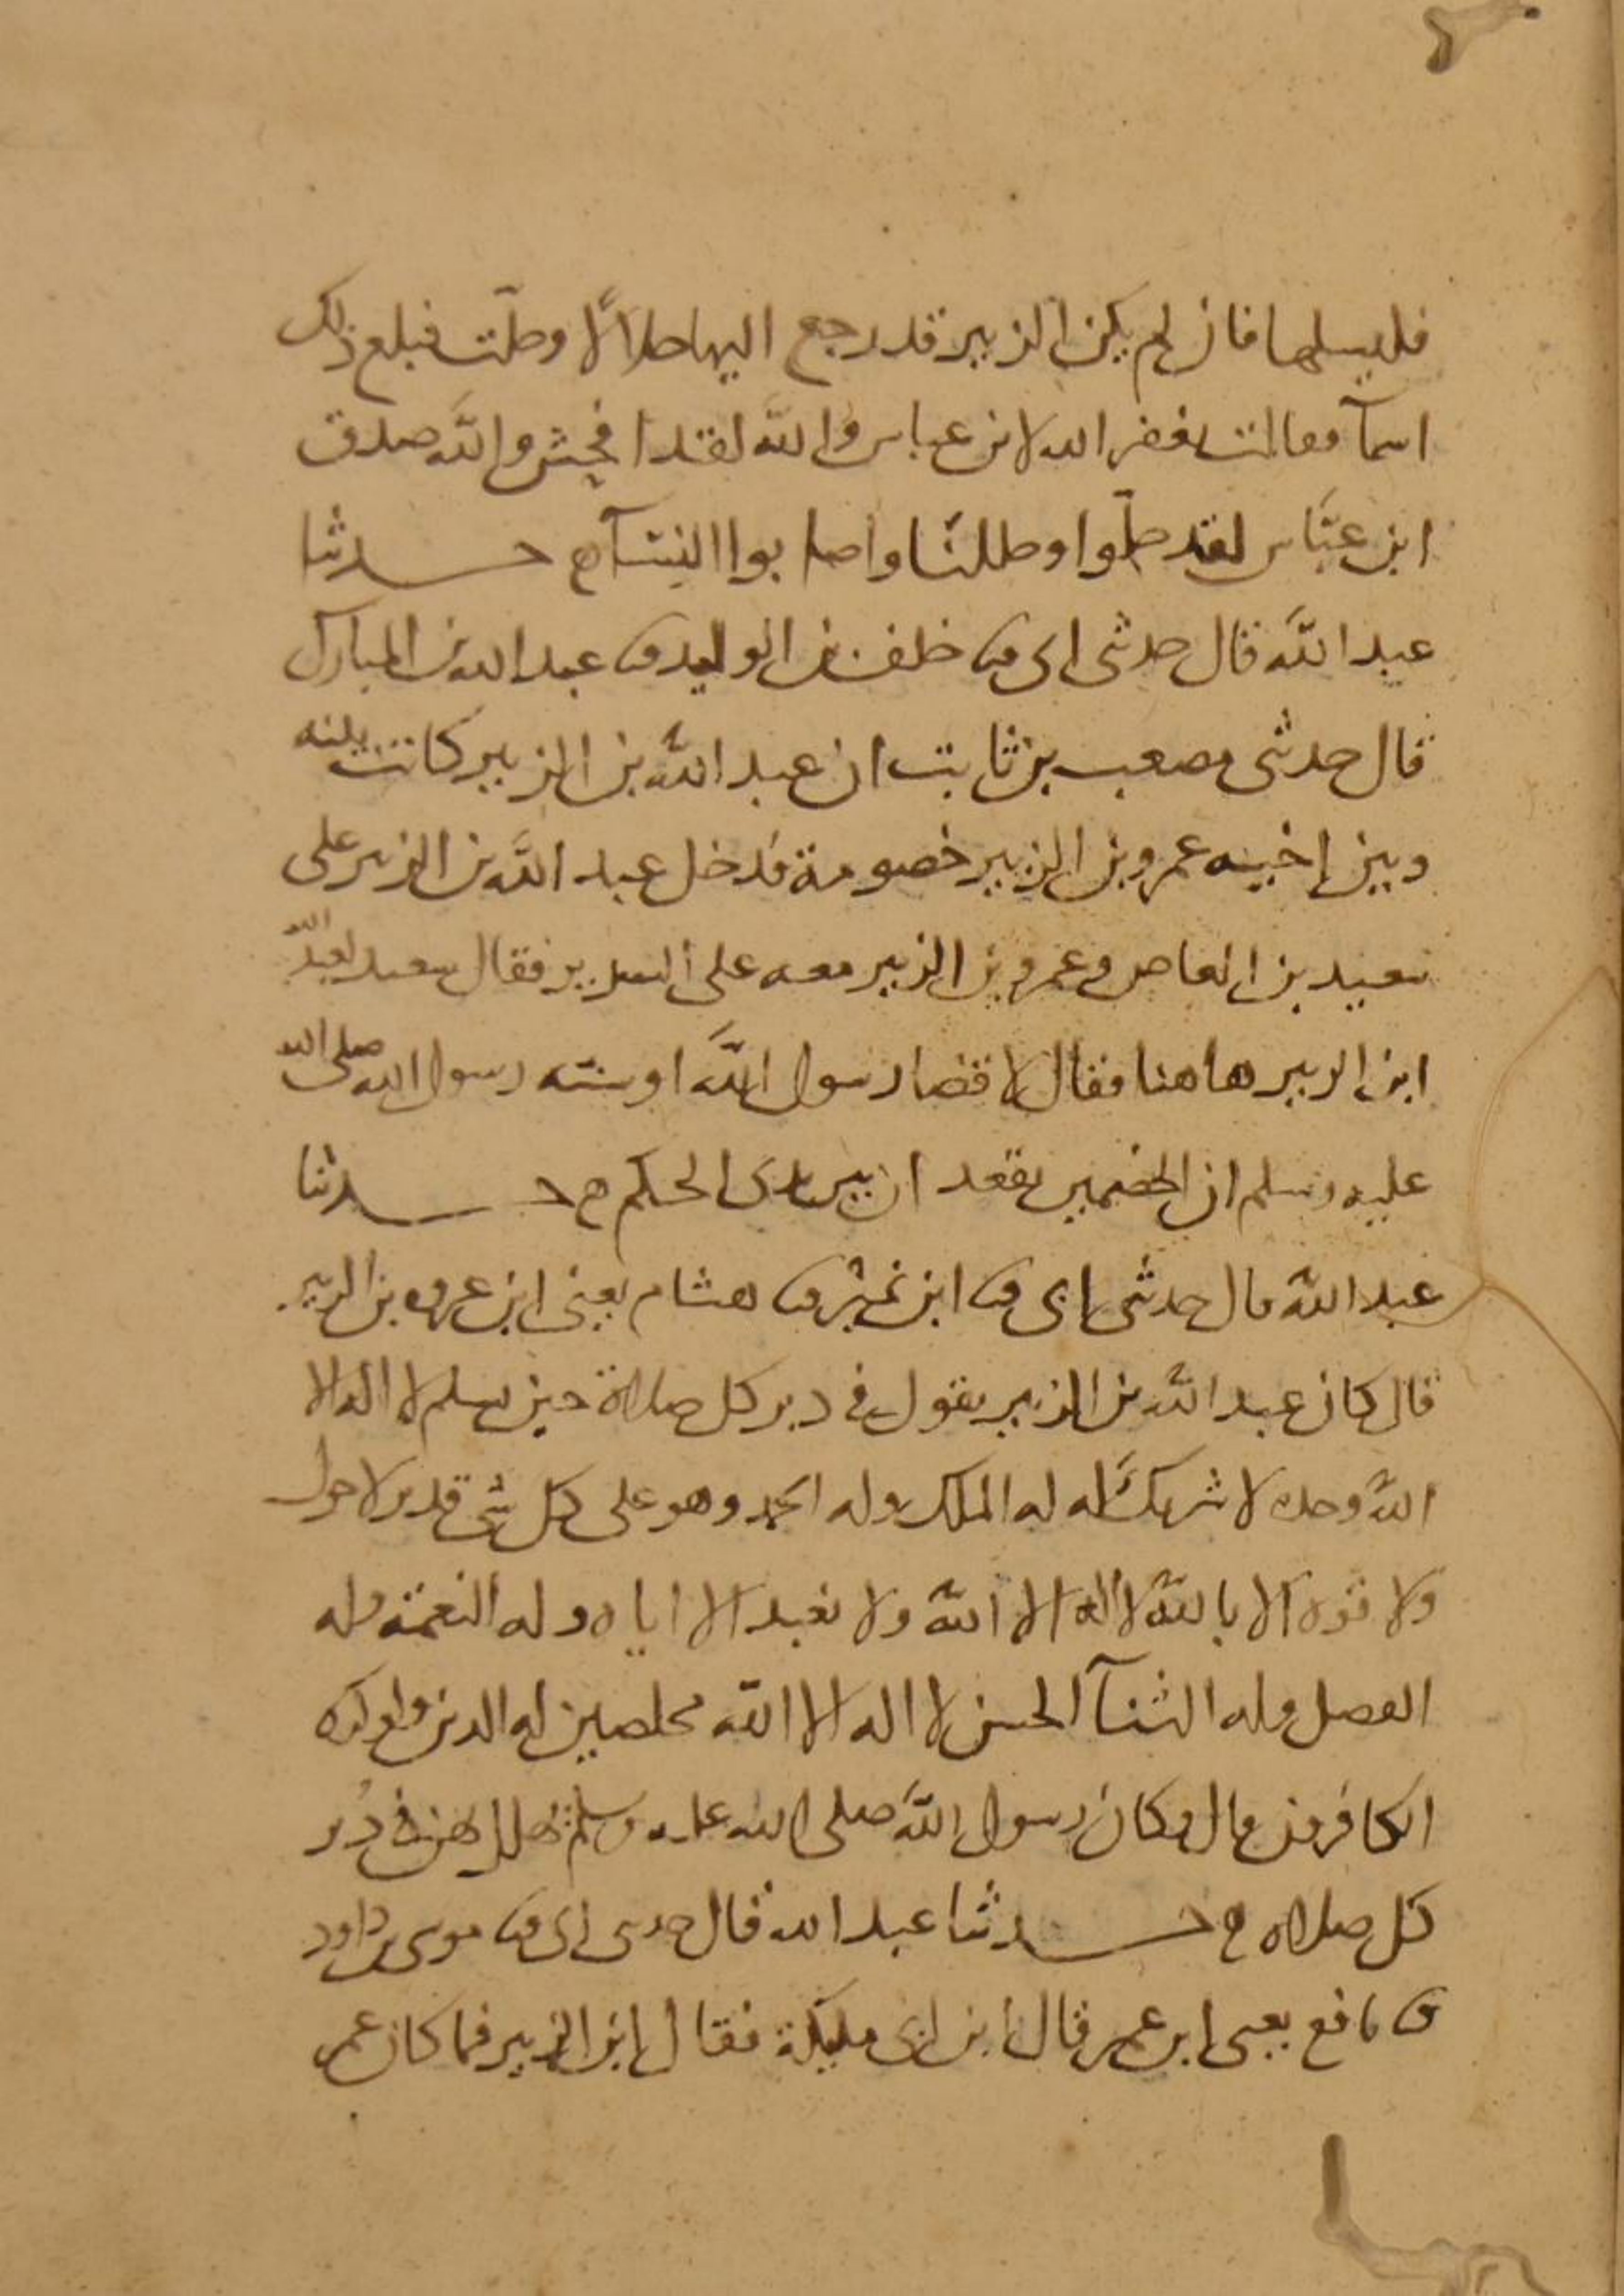 فليسلها فان لم يكن الزبير قد رجع اليها حلالًا وحلّت فبلغ ذلك
اسمآ فقالت يغفر الله لابن عباس والله لقد افحش والله صدق
ابن عبّاس لقد حلّوا وحللنا واصابوا النسآ ه حدثنا
عبد الله قال حدثني ابي ثنا خلف بن الوليد ثنا عبد الله بن المبارك
قال حدثني مصعب بن ثابت ان عبد الله بن الزبير كانت بينه
وبين اخيه عمرو بن الزبير خصومة فدخل عبد الله بن الزبير على
سعيد بن العاص وعمرو بن الزبير معه على السرير فقال سعيد لعبد الله
ابن الزبير هاهنا فقال لا قضا رسول الله او سنة رسول الله صلى الله
عليه وسلم ان الخصمين يقعدان بين يدي الحكم ه حدثنا
عبد الله قال حدثني ابي ثنا ابن نمير ثنا هشام يعني ابن عروه بن الزبير
قال كان عبد الله بن الزبير يقول في دبر كل صلاة حين يسلم لا اله الا
الله وحده لا شريك له له الملك وله الحمد وهو على كل شي قدير لا حول
ولا قوه الا بالله لا اله الا الله ولا نعبد الا اياه وله النعمة وله
الفضل وله الثنآ الحسن لا اله الا الله مخلصين له الدين ولو كره
الكافرون قال وكان رسول الله صلى الله عليه وسلم يهلل بهن في دبر
كل صلاه ه حدثنا عبد الله قال حدثني ابي ثنا موسى بن داود
ثنا نافع يعني ابن عمر قال ابن ابي مليكة فقال ابن الزبير فما كان عمر